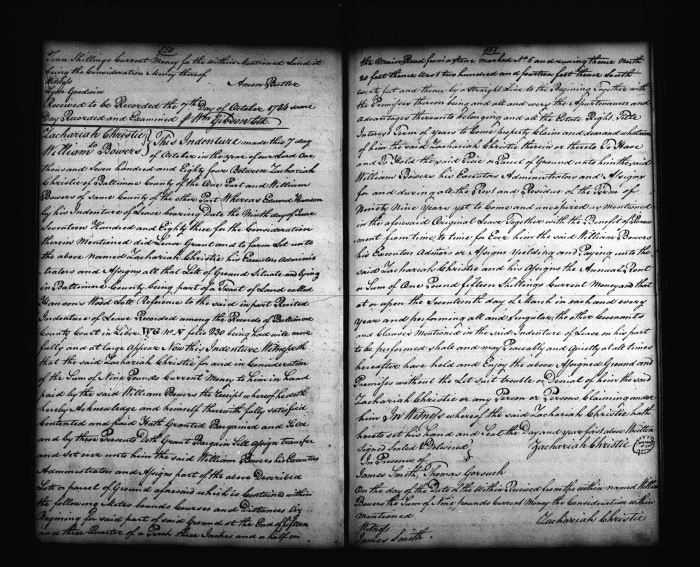 550
Tenn Shillings Current Money for the within Mentioned Land it
being the Consideration Money thereof
Witness Amon Butler
Lyde Goodwin
Received to be Recorded the 7th Day of October 1784 same
Day Recorded and Examined Wm Gibson Clk
Zachariah Christie
to
William Bowers
This Indenture made this 7 day
of October in the year of our Lord One
thousand Seven hundred and Eighty four Between Zachariah
Christie of Baltimore County of the One Part and William
Bowers of same County of the other Part Whereas Edward Hanson
by his Indenture of Lease bearing Date the Ninth day of June
Seventeen Hundred and Eighty three for the Consideration
therein Mentioned did Lease Grant and to farm Let unto
the above Named Zachariah Christie his Executors Adminis
trators and Assigns all that Lot of Ground Situate and lying
in Baltimore County being part of a Tract of Land called
Hansons Wood Lott Reference to the said in part Recited
Indenture of Lease Recorded among the Records of Baltimore
County Court in Liber WG No N folio 230 being had will more
fully and at large Appear Now this Indenture Witnesseth
that the said Zachariah Christie for and in Consideration
of the Sum of Nine Pounds Current Money to him in hand
paid by the said William Bowers the Receipt whereof he doth
hereby Acknowledge and himself therewith fully satisfied
Contented and paid Hath Granted Bargained and Sold
and by these Presents Doth Grant Bargain Sell Assign transfer
and Set over unto him the said William Bowers his Executors
Administrators and Assigns part of the above Described
Lott or parcel of Ground aforesaid which is Contained within
the following Metes bounds Courses and Distances Viz
Begining for said part of said Ground at the End of fifteen
and three Quarter of a Perch three Inches and a half on
551
the Main Road from a Stone marked No 5 and runing thence North
20 feet thence West two hundred and fourteen feet thence South
twenty feet and thence by a Straight Line to the Begining Together with
the Premises thereon being and all and every the Apurtenances and
Advantages thereunto belonging and all the Estate Right Title
Interest Term of Years to Come property Claim and demand whatsoever
of him the said Zachariah Christie therein or thereto To Have
and To Hold the said Piece or Parcel of Ground unto him the said
William Bowers his Executors Administrators and Assigns
for and during all the Rest and Residue of the Term of
Ninety Nine Years yet to Come and unexpired as Mentioned
in the aforesaid Original Lease Together with the Benefit of Renew
ment from time to time for Ever him the said William Bowers
his Executors Admtors or Assigns Yielding and Paying unto the
said Zachariah Christie and his Assigns the Annual Rent
or Sum of One Pound fifteen Shillings Current Money and that
at or upon the Seventeenth day of March in each and every
Year and performing all and Singular the other Covenants
and Clauses Mentioned in the said Indenture of Lease on his part
to be performed shall and may Peaceably and Quietly at all times
hereafter have hold and Enjoy the above Assigned Ground and
Premises without the Let Suit trouble or Denial of him the said
Zachariah Christie or any Person or Persons Claiming under
him In Witness whereof the said Zachariah Christie hath
hereto set his hand and Seal the Day and year first above Written
Signed Sealed & Delivered
In Presence of
Zachariah Christie
James Smith, Thomas Gorsuch
On the day of the Date of the Within Received from the within named William
Bowers the Sum of Nine pounds Current Money the Consideration within
Mentioned
Zachariah Christie
Witness
James Smith